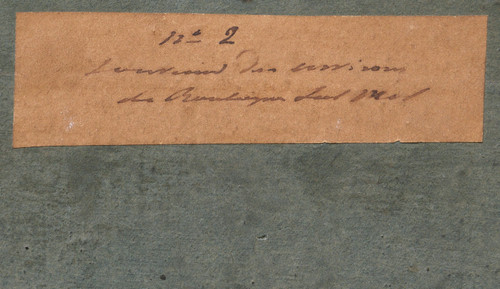 N° 2
Souvenir des environs
de Boulogne Sur Mer